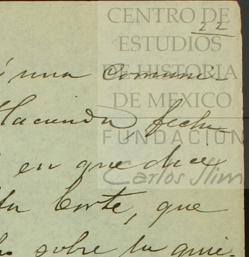 CENTRO DE
22
ESTUDIOS
DE HISTORIA
DE MEXICO
FUNDACIÓN
Carlos Slim
una Comuni
Hacienda, fecha
en que dice
Corte, que
sobre la